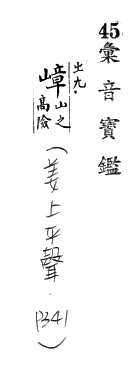 45.彙音寶鑑
出九.
嶂山之高險
(姜上平聲. P341)